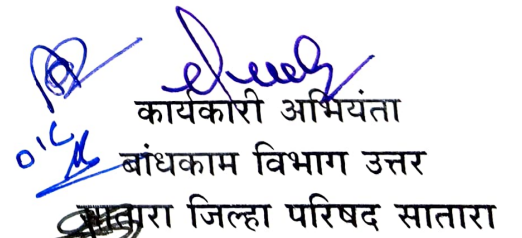 कार्यकारी अभियंता
बांधकाम विभाग उत्तर
सातारा जिल्हा परिषद सातारा